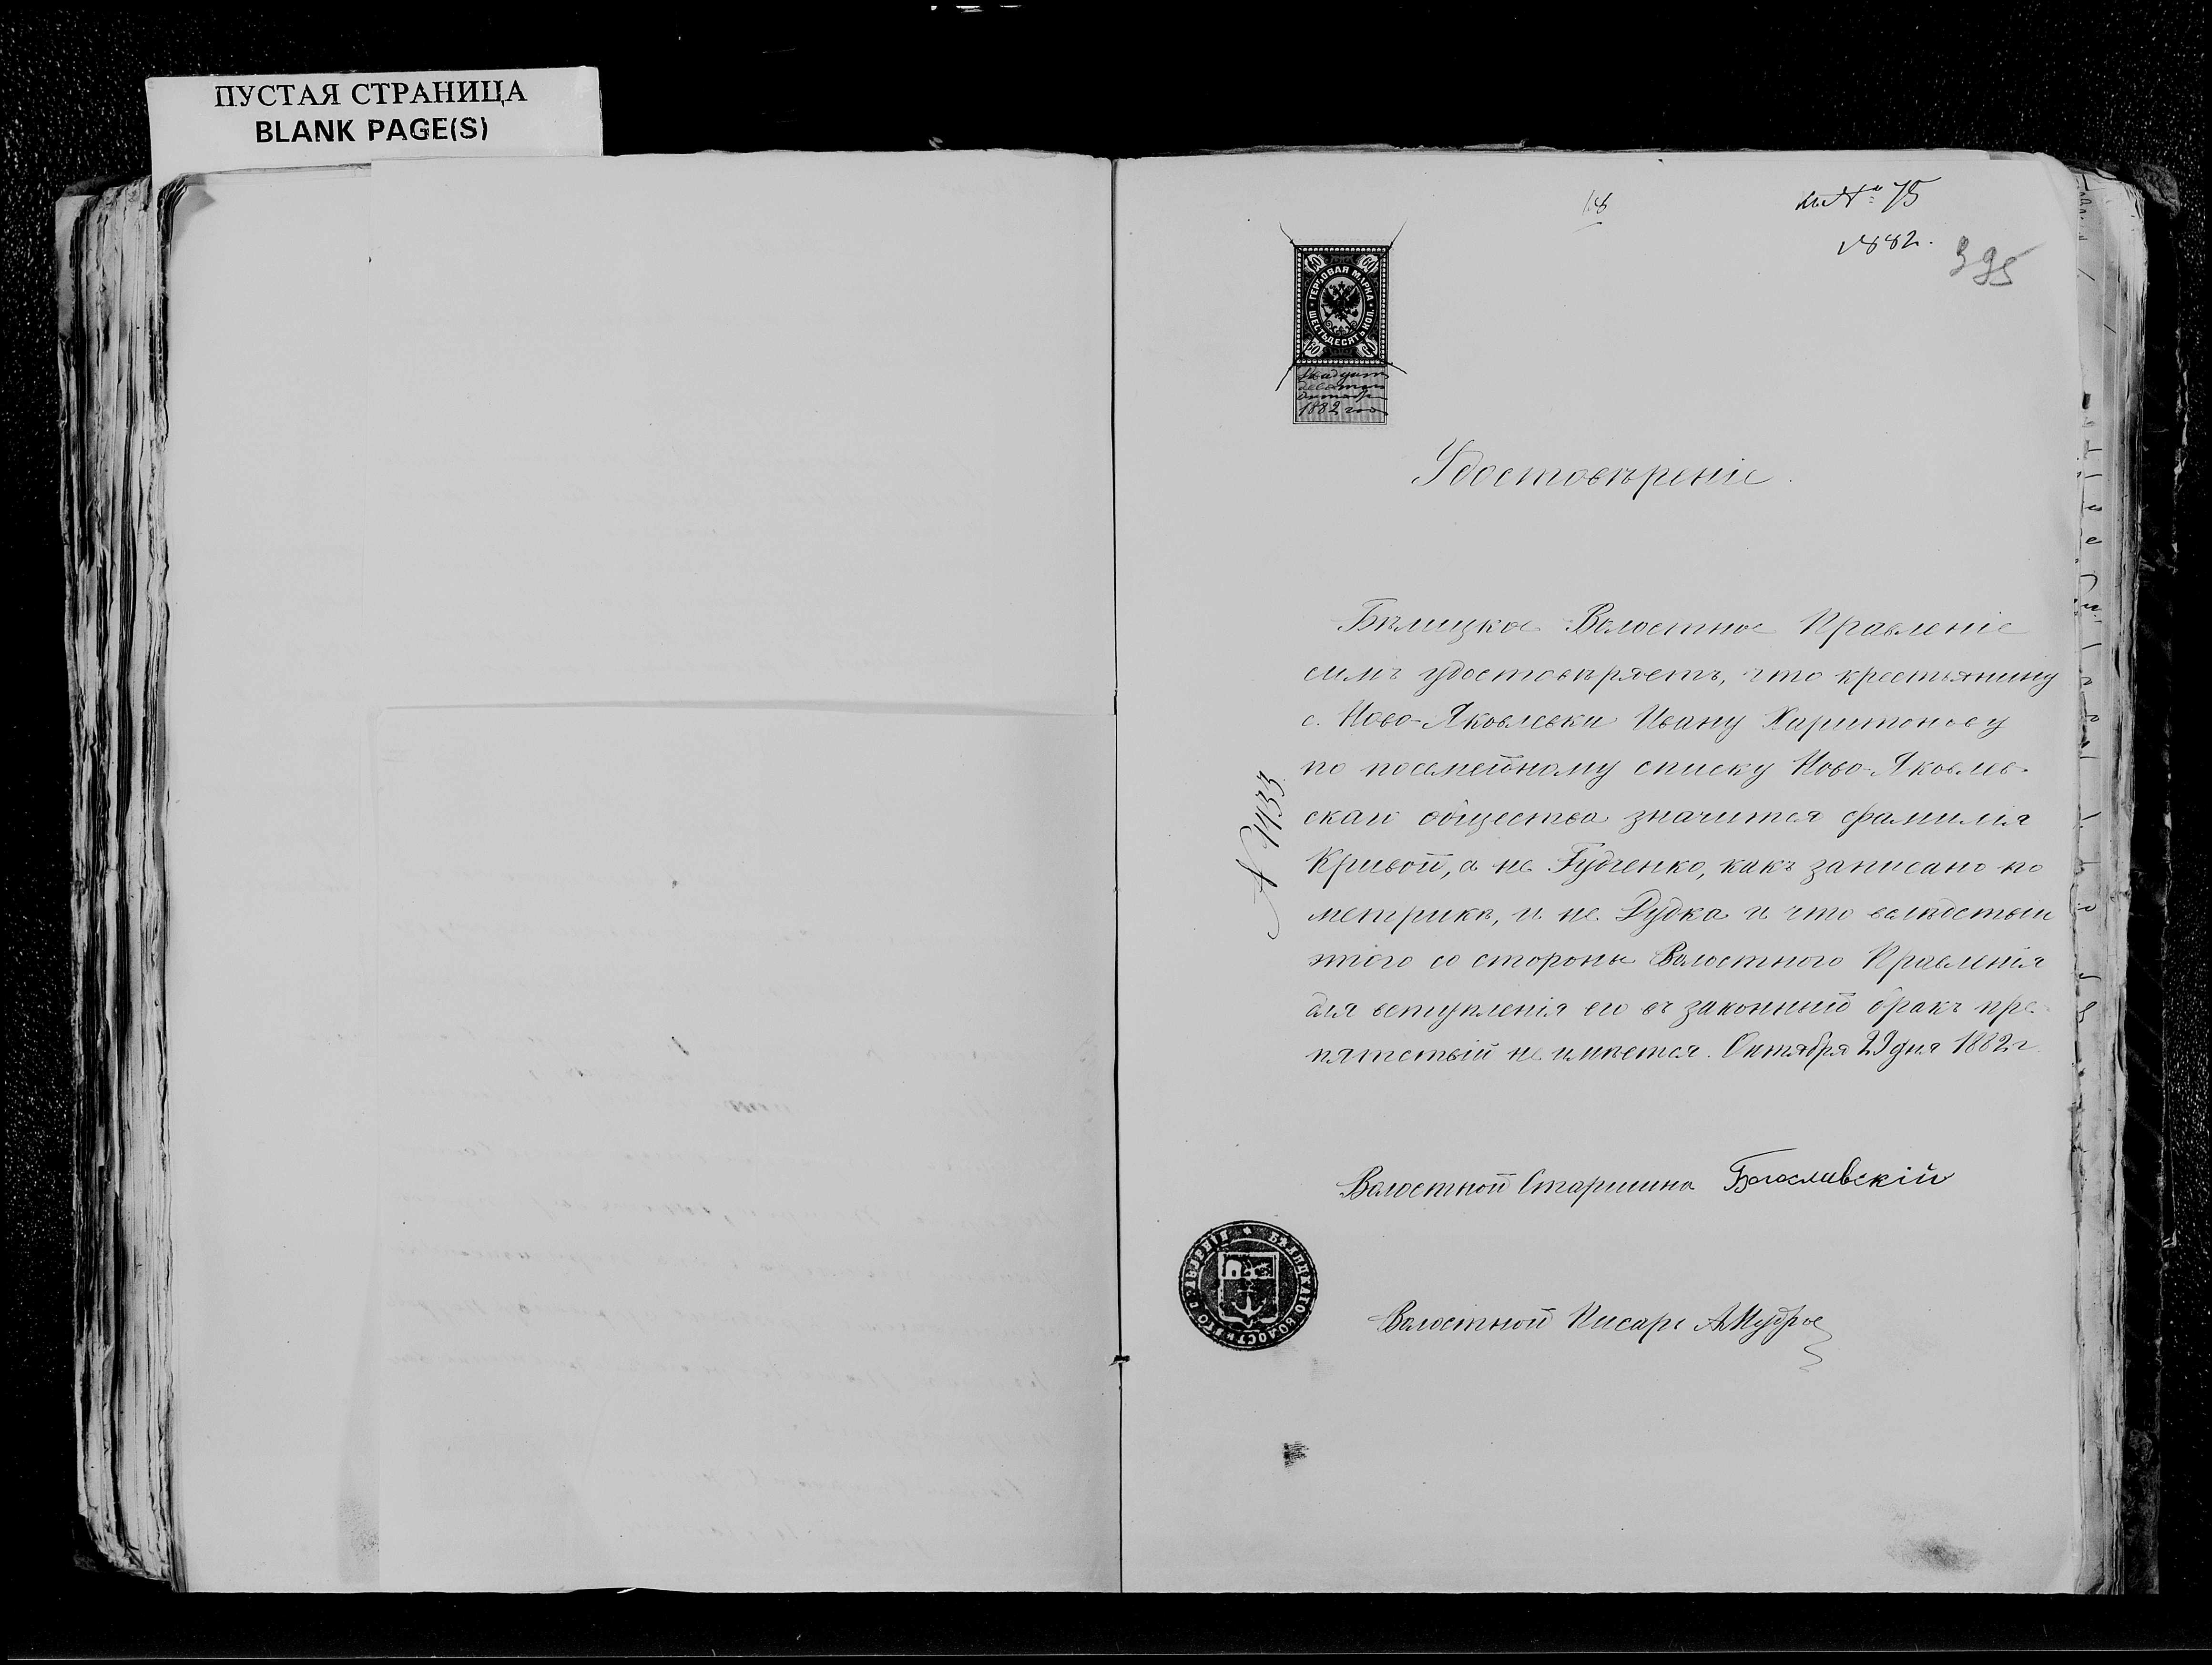 ПУСТАЯ СТРАНИЦА
BLANK PAGE(S)
18
№ 75
1882.
395
60 60
ГЕРБОВАЯ МАРКА
ШЕСТЬДЕСЯТЪ КОП.
60 60
Двадцать
девятаго
Октября
1882 года
Удостовѣреніе.
Бѣлицкое Волостное Правленіе
симъ удостовѣряетъ, что крестьянину
с. Ново-Яковлевки Ивану Харитонову
по посемейному списку Ново-Яковлев-
скаго общества значится фамилія
Кривой, а не Гудченко, какъ записано по
метрикѣ, и не Дудка и что вслѣдствіи
этого со стороны Волостного Правленія
для вступленія его въ законный бракъ пре-
пятствій не имѣется. Октября 29 дня 1882 г.
№ 1433
Волостной Старшина Богославскій
БѢЛИЦКАГО ВОЛОСТНАГО ГУБЕРНІИ
Волостной Писарь А. Мудрое